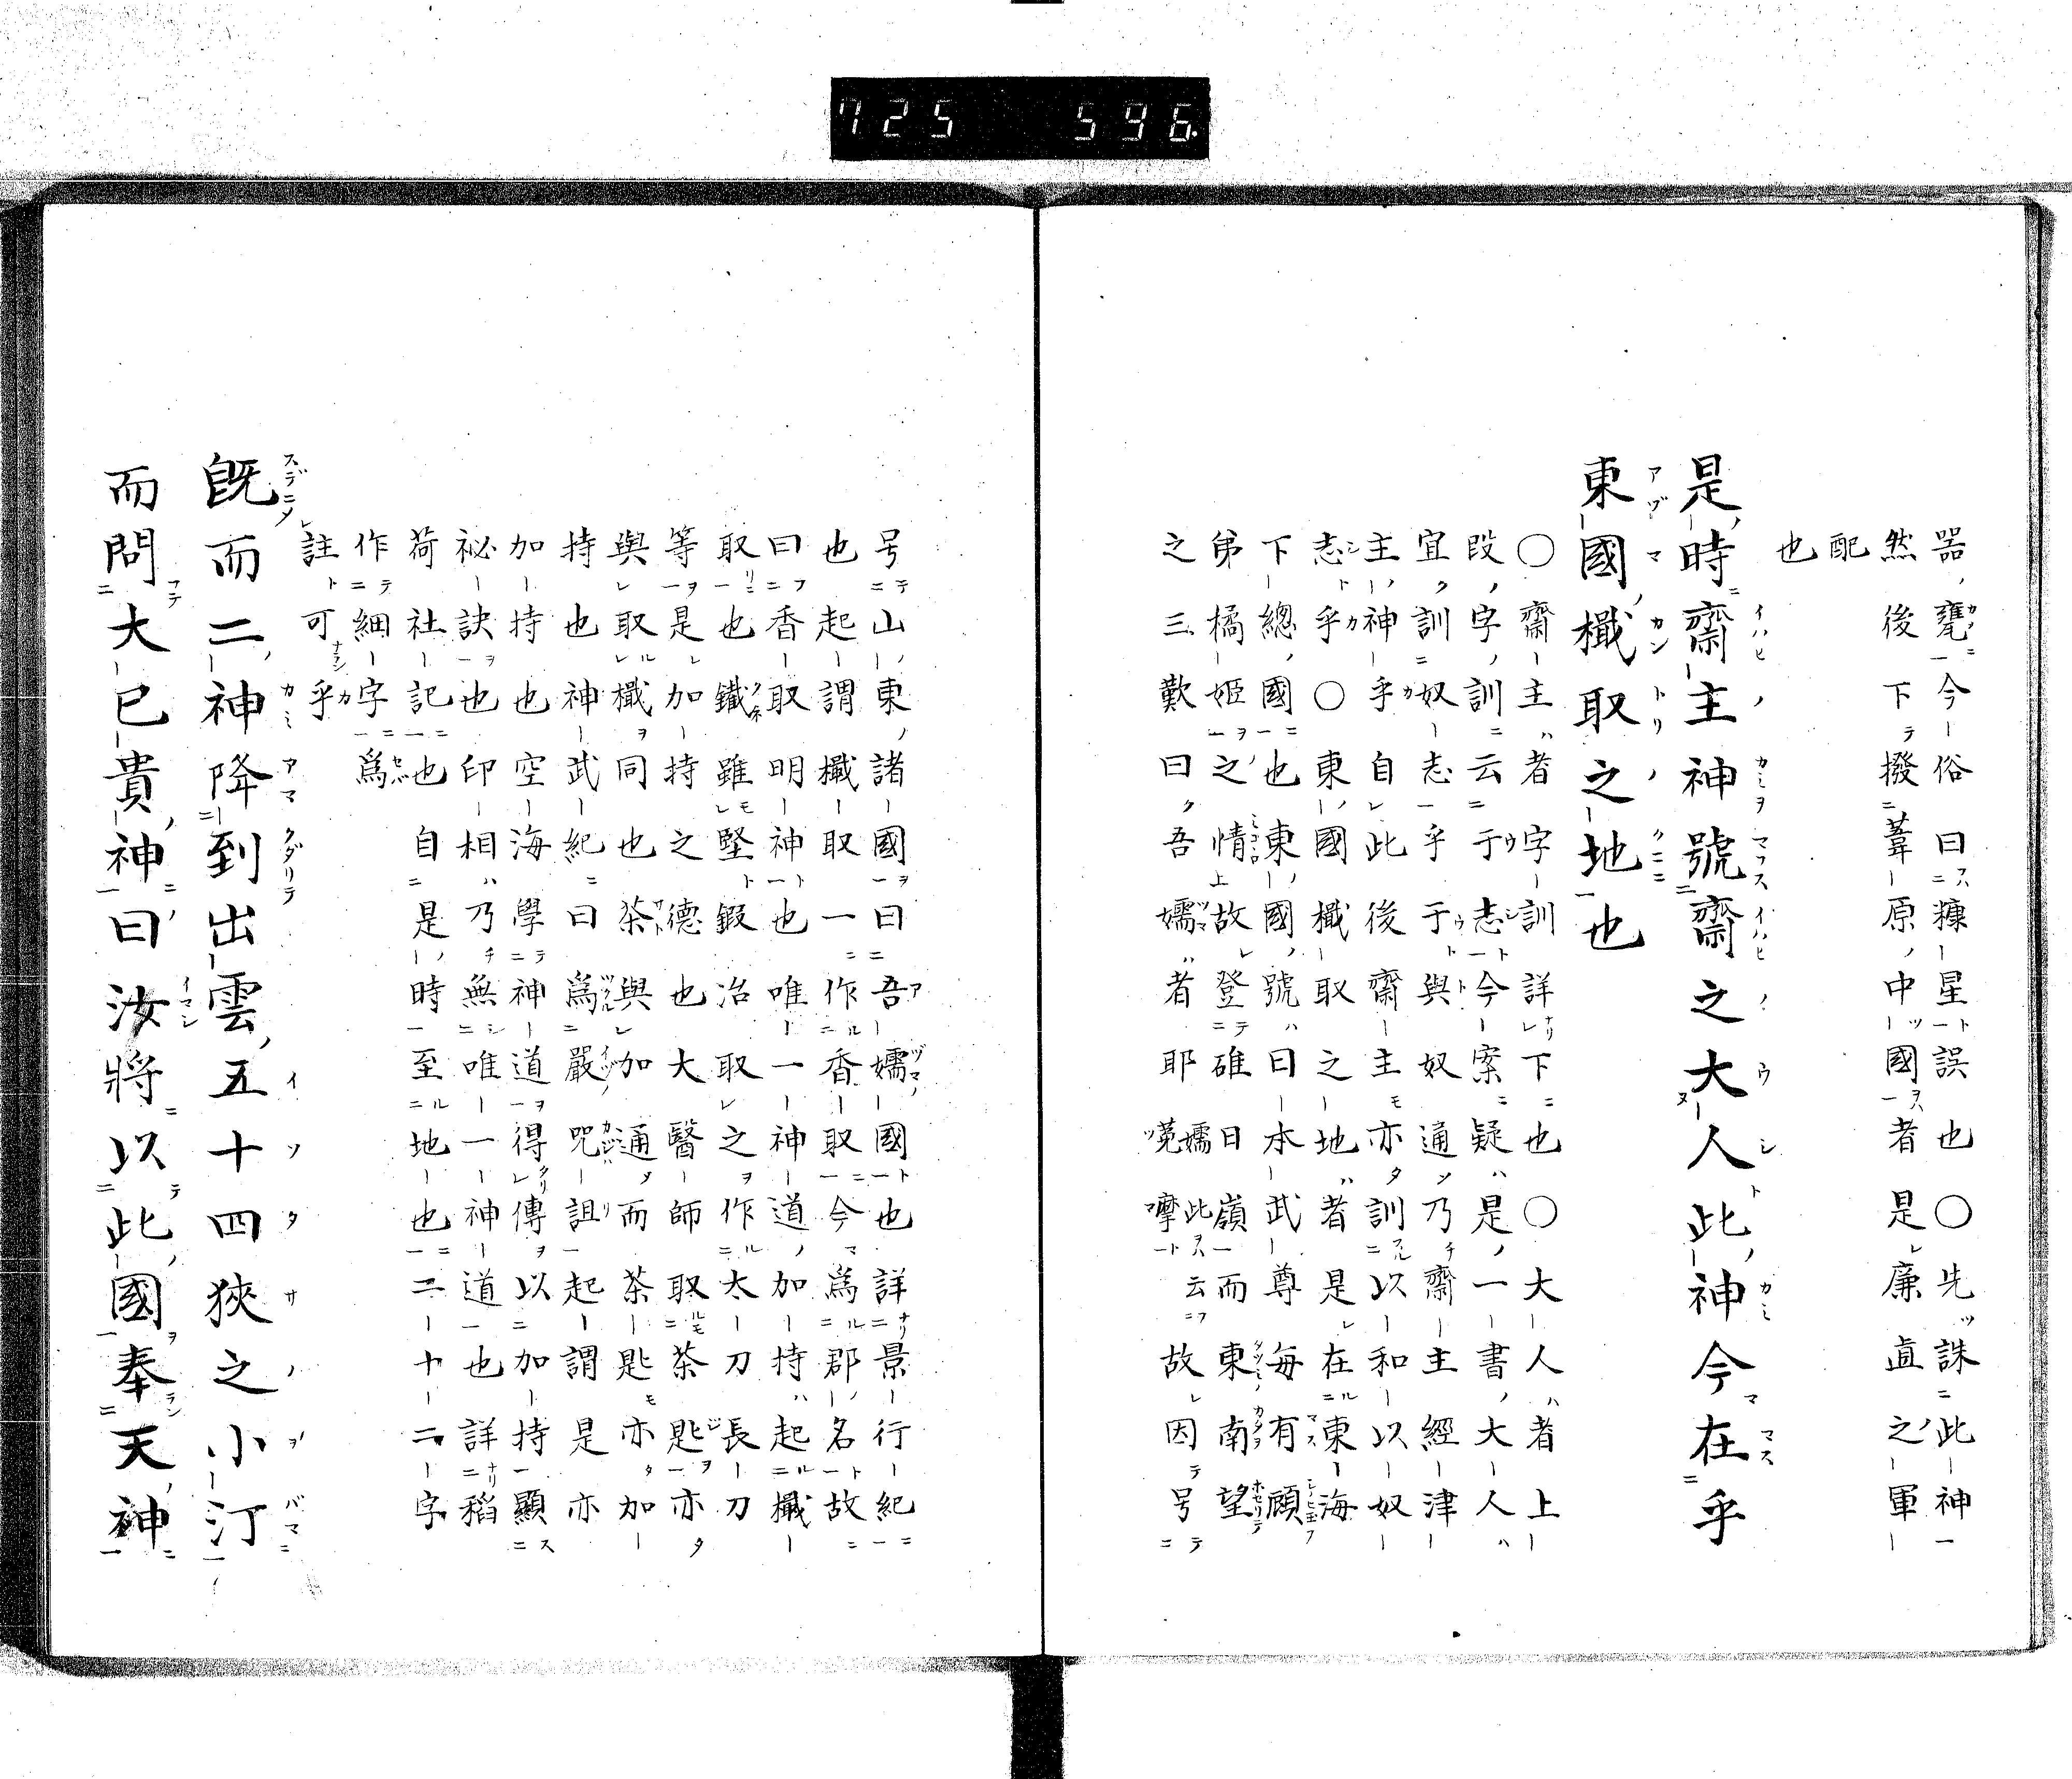 725 596
器甕今俗曰糠星誤也〇先誅此神
然後下撥葦原中國者是廉直之軍
配
也
是時齋主神號齋之大人此神今在乎
東國檝取之地也
〇齋主者字訓詳下也〇大人者上
段字訓云于志今案疑是一書大人
宜訓奴志乎于與奴通乃齋主經津
主神乎自此後齋主亦訓以和以奴
志乎〇東國檝取之地者是在東海
下總國也東國號曰本武尊每有顧
弟橘姬之情故登碓日嶺而東南望
之三歎曰吾嬬者耶嬬此云菟摩故因号
号山東諸國曰吾嬬國也詳景行紀
也起謂檝取一作香取今爲郡名故
曰香取明神也唯一神道加持起檝
取也鐵雖堅鍛冶取之作太刀長刀
等是加持之德也大醫師取茶匙亦
與取檝同也茶與加通而茶匙亦加
持也神武紀曰爲嚴咒詛起謂是亦
加持也空海學神道得傳以加持顯
祕訣也印相乃無唯一神道也詳稻
荷社記也自是時至地也二十二字
作細字爲
註可乎
既而二神降到出雲五十四狹之小汀
而問大已貴神曰汝將以此國奉天神